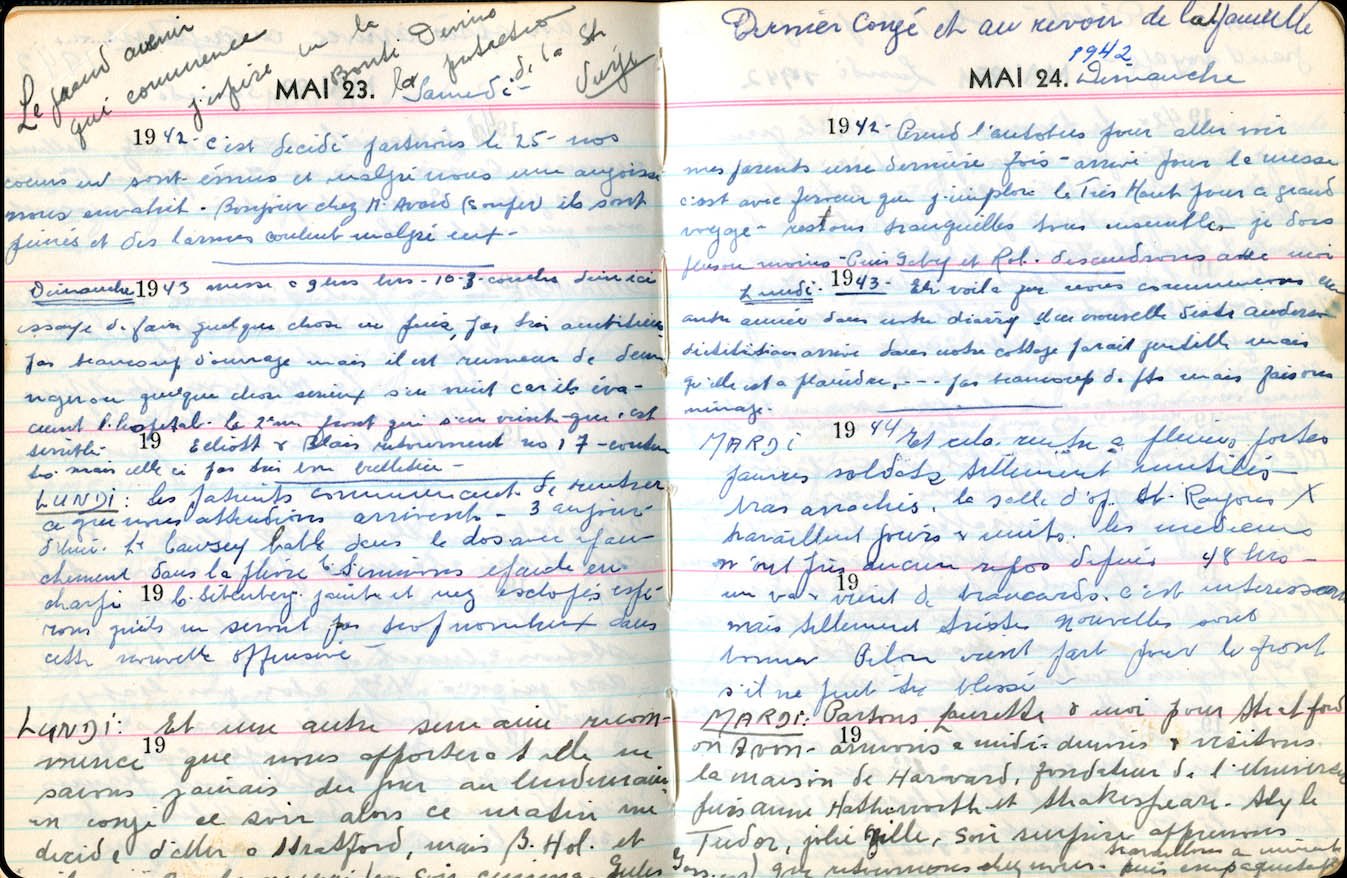 Le grand avenir
qui commence
j'espère en la
Bonté Divine
la protection
de la Ste
Vierge
MAI 23. Samedi-
1942- C'est décidé partirons le 25- nos
coeurs en sont émus et malgré nous une angoisse
nous envahit. Bonjour chez M. Avard ils sont
peinés et des larmes coulent malgré eux-
Dimanche 1943 messe a 9 hrs - 10-3
essaye de faire quelque chose
pas beaucoup d'ouvrage mais il est rumeur de
quelque chose sérieux s'en vient car ils éva-
cuent l'hopital. le 2em front qui s'en vient que c'est
terrible. 19 Elliott & Blais retournent no 17-
mais celle ci pas très
LUNDI: Les patients commencent de rentrer
ce que nous attendions arrivent - 3 aujour-
d'hui. Lt Cawsey balle dans le dos avec épan-
chement dans la plèvre Lt Simmons épaule en
charpi 19 C. jambe et nez esclopés espé-
rons qu'ils ne seront pas trop nombreux dans
cette nouvelle offensive-
LUNDI: Et une autre semaine recom-
19
mence que nous apportera t elle ne
savons jamais du jour au lendemain
en congé ce soir alors ce matin me
décide d'aller a Stratford, mais B. Hol. et
soir cinema. Gules
Dernier congé et au revoir de la famille
1942
MAI 24. Dimanche
1942- Prend l'autobus pour aller voir
mes parents une dernière fois - arrive pour la messe
c'est avec ferveur que j'implore le Très Haut pour ce grand
voyage - restons tranquilles tous ensembles je dors
plus ou moins - Puis Gaby et Rol. descendrons avec moi
Lundi. 1943- Et voila que nous commencions une
autre année dans notre diary. Une nouvelle
diététitienne arrive dans notre cottage parait gentille mais
qu'elle est a plaindre, --- pas beaucoup de pts mais faisons
ménage.
MARDI 1944 Et cela rentre a pleines portes
pauvres soldats tellement mutilés
bras arrachés. la salle d'op. et Rayons X
travaillent jours & nuits. les médecins
n'ont pris aucun repos depuis 48 hrs-
19
un va & vient de brancards. c'est interessant
mais tellement tristes nouvelles sont
bonnes Pilon vient part pour le front
s'il ne peut être blessé-
MARDI: Partons Laurette & moi pour Stratford
19
on Avon- arrivons a midi- dinons & visitons
la maison de Harvard, fondateur de l'Université
puis anne Hathaworth et Shakespeare. Style
Tudor, jolie ville, Soir surprise apprenons
travaillons a minuit
que retournons chez nous. puis empaquetage